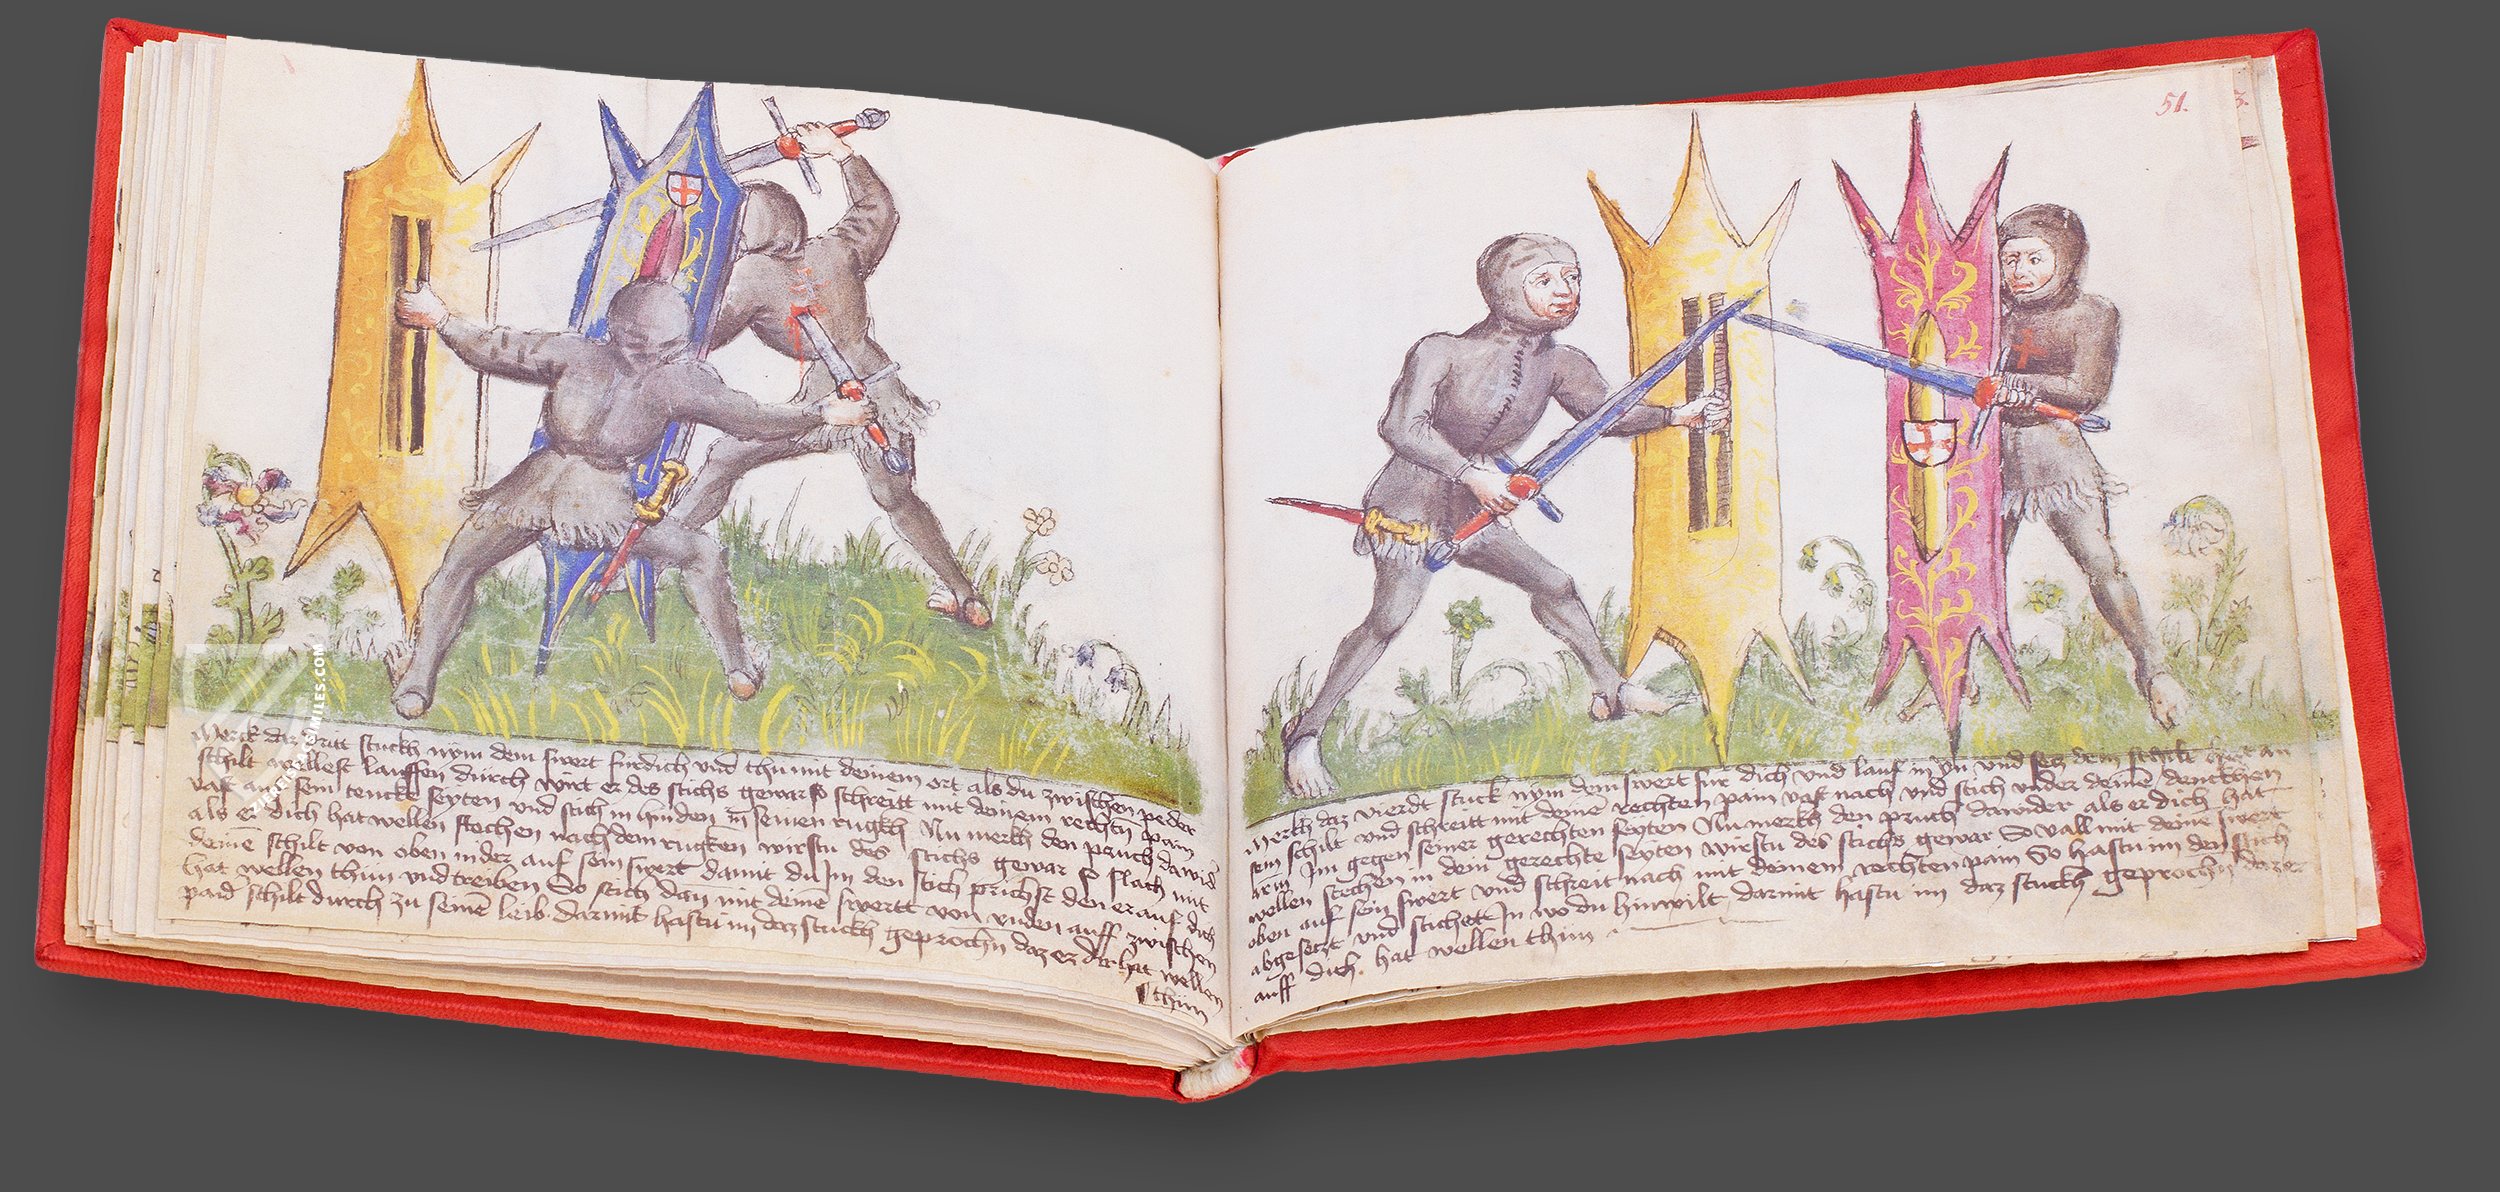 Merck daz dritt stuckh nym dem swert fur dich und thu mit deinem ort als du zwischen peder
schilt wellest lauffen durch wirt er des stichs gewar so schreitt mit deinem rechtn pain
vast auf sein tencke seyten und stich in hinden in seinen rugkh Nu merkh den pruch dawider
als er dich hat wellen stechen nach dem rugken wirstu des stichs gewar So slach mit
deinē schilt von oben nider auf sein swert damit du Im den stich prichst den er auf dich
hat wellen thun und treiben So stich dan mit deinē swertt von unden auff zwischen
paid schilt durch zu seinē leib. darmit hastu im daz stuckh geprochn daz er der hat wellen
thun
PIERCEFACSIMILES.COM
51.
3.
Merckh daz vierdt stuck nym dem swert fur dich und lauf in yn und secz dem schilt hert an
sein schilt und schreitt mit deinē rechten pain vast nach und stich under deinē denckhen
arm Im gegen seiner gerechten seyten Nu merkh den pruch dawider als er dich hat
wellen stechen in dein gerechte seyten wirstu des stichs gewar So vall mit deinē swert
oben auf sein swert und schreit nach mit deinem rechten pain So hastu im den stich
abgeseczt und stichett In wo du hinwilt darmit hastu im daz stuckh geprochn daz er
auff dich. hat wellen thun